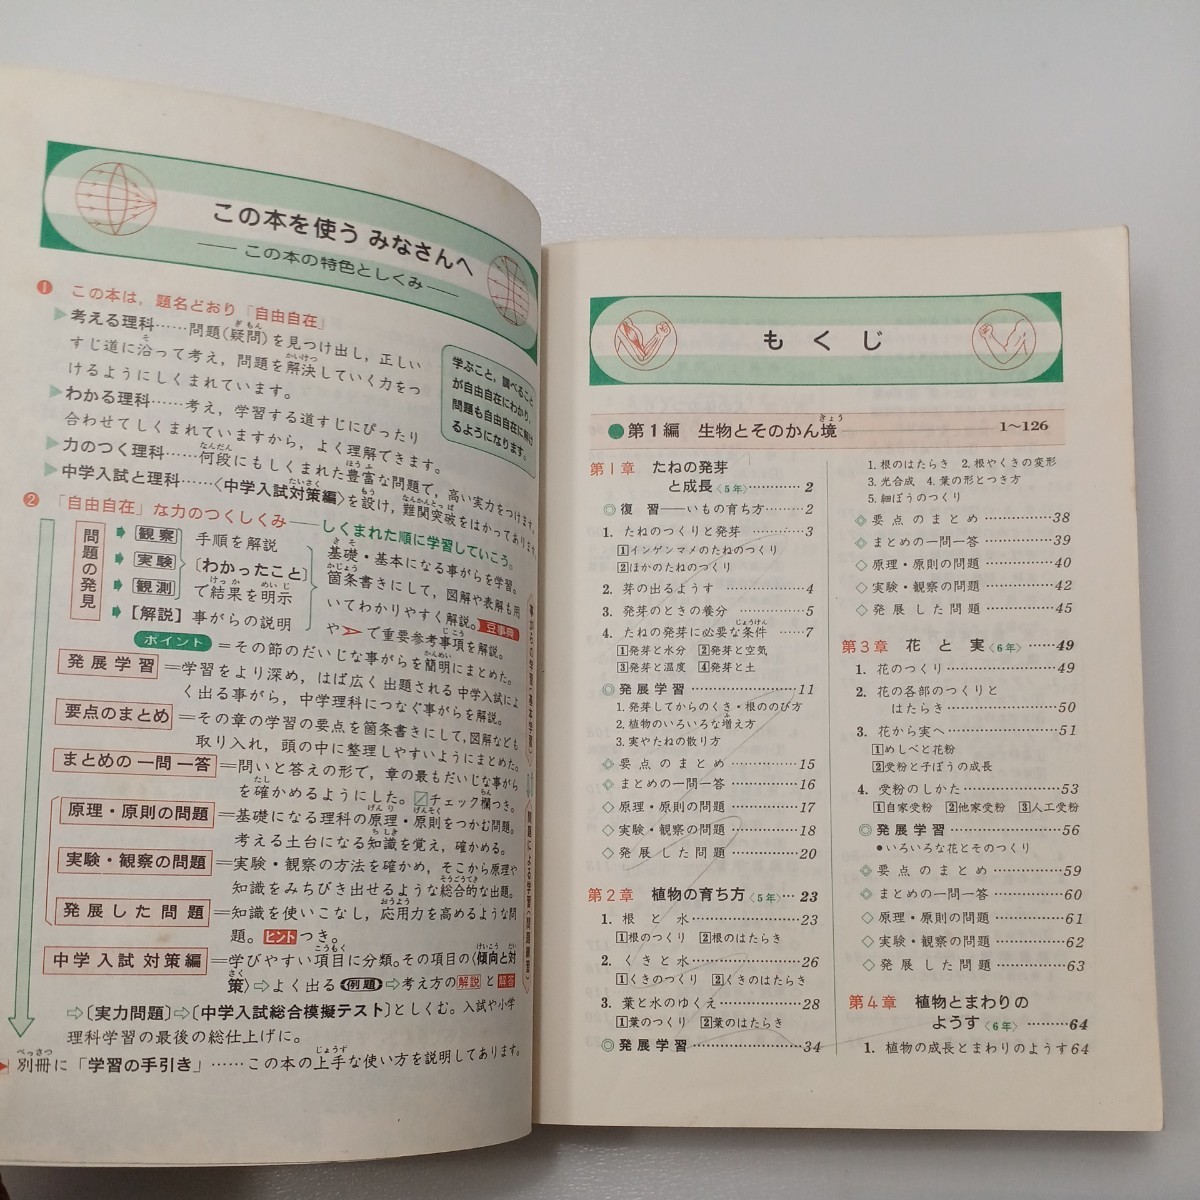 この本を使う みなさんへ
――この本の特色としくみ――
❶ この本は，題名どおり「自由自在」
▶考える理科……問題(疑問)を見つけ出し，正しい
すじ道に沿って考え，問題を解決していく力をつ
けるようにしくまれています。
▶わかる理科……考え，学習する道すじにぴったり
合わせてしくまれていますから，よく理解できます。
▶力のつく理科……何段にもしくまれた豊富な問題で，高い実力をつけます。
▶中学入試と理科……〈中学入試対策編〉を設け，難関突破をはかってあります。
学ぶこと，調べること
が自由自在にわかり，
問題も自由自在に解け
るようになります。
❷ 「自由自在」な力のつくしくみ――しくまれた順に学習していこう。
問題の発見
[観察]
[実験]
[観測]
手順を解説
〔わかったこと〕
で結果を明示
【解説】事がらの説明
基礎・基本になる事がらを学習。
箇条書きにして，図解や表解も用
いてわかりやすく解説。豆事典
や➤で重要参考事項を解説。
事がらの学習(基本学習)
ポイント＝その節のだいじな事がらを簡明にまとめた。
発展学習＝学習をより深め，はば広く出題される中学入試によ
く出る事がら，中学理科につなぐ事がらを解説。
要点のまとめ＝その章の学習の要点を箇条書きにして，図解なども
取り入れ，頭の中に整理しやすいようにまとめた。
まとめの一問一答＝問いと答えの形で，章の最もだいじな事がら
を確かめるようにした。☑チェック欄つき。
原理・原則の問題＝基礎になる理科の原理・原則をつかむ問題。
考える土台になる知識を覚え，確かめる。
実験・観察の問題＝実験・観察の方法を確かめ，そこから原理や
知識をみちびき出せるような総合的な出題。
発展した問題＝知識を使いこなし，応用力を高めるような問
題。ヒントつき。
問題による学習(問題練習)
中学入試対策編＝学びやすい項目に分類。その項目の〈傾向と対
策〉⇨よく出る例題⇨考え方の解説と解答
⇨〔実力問題〕⇨〔中学入試総合模擬テスト〕としくむ。入試や小学
理科学習の最後の総仕上げに。
▶別冊に「学習の手引き」……この本の上手な使い方を説明してあります。
もくじ
●第1編 生物とそのかん境――1～126
第1章 たねの発芽
と成長〈5年〉…………2
◎復習――いもの育ち方………2
1. たねのつくりと発芽…………3
1インゲンマメのたねのつくり
2ほかのたねのつくり
2. 芽の出るようす………………4
3. 発芽のときの養分……………5
4. たねの発芽に必要な条件……7
1発芽と水分 2発芽と空気
3発芽と温度 4発芽と土
◎発展学習…………………11
1. 発芽してからのくき・根ののび方
2. 植物のいろいろな増え方
3. 実やたねの散り方
◇要点のまとめ……………15
◇まとめの一問一答…………16
◇原理・原則の問題…………17
◇実験・観察の問題…………18
◇発展した問題……………20
第2章 植物の育ち方〈5年〉…23
1. 根と水……………………23
1根のつくり 2根のはたらき
2. くきと水…………………26
1くきのつくり 2くきのはたらき
3. 葉と水のゆくえ……………28
1葉のつくり 2葉のはたらき
◎発展学習…………………34
1. 根のはたらき 2. 根やくきの変形
3. 光合成 4. 葉の形とつき方
5. 細ぼうのつくり
◇要点のまとめ……………38
◇まとめの一問一答…………39
◇原理・原則の問題…………40
◇実験・観察の問題…………42
◇発展した問題……………45
第3章 花と実〈6年〉……49
1. 花のつくり…………………49
2. 花の各部のつくりと
はたらき……………50
3. 花から実へ…………………51
1めしべと花粉
2受粉と子ぼうの成長
4. 受粉のしかた………………53
1自家受粉 2他家受粉 3人工受粉
◎発展学習…………………56
●いろいろな花とそのつくり
◇要点のまとめ……………59
◇まとめの一問一答…………60
◇原理・原則の問題…………61
◇実験・観察の問題…………62
◇発展した問題……………63
第4章 植物とまわりの
ようす〈6年〉………64
1. 植物の成長とまわりのようす64